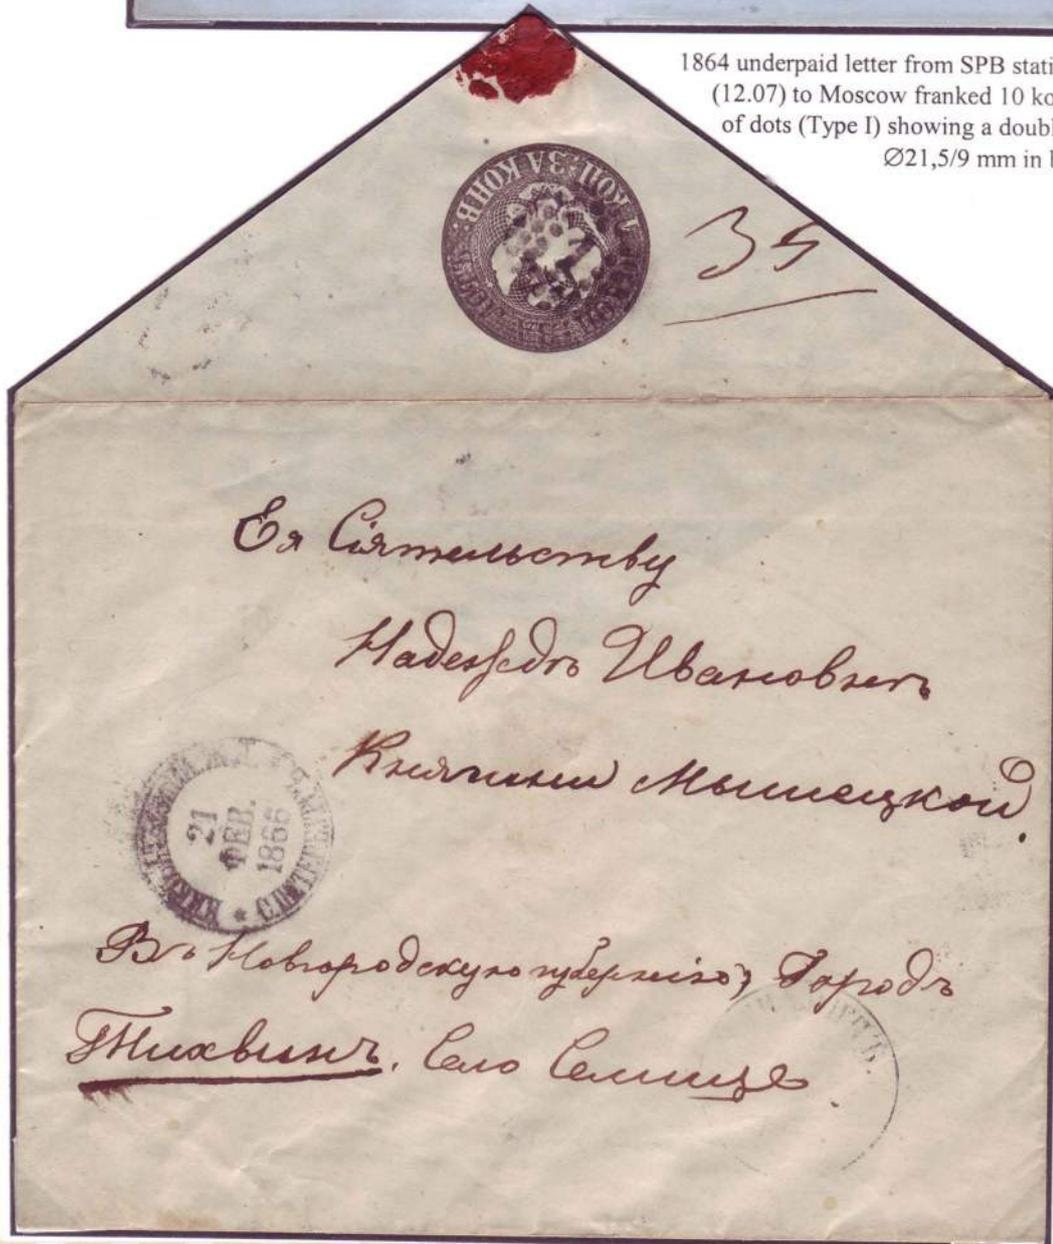 1864 underpaid letter from SPB stati
(12.07) to Moscow franked 10 ko
of dots (Type I) showing a doubl
Ø21,5/9 mm in
КОП: ЗА КОНВ.
35
Ея Сіятельству
Надеждѣ Ивановнѣ
Княгини Мышецкой
21
ФЕВ.
1866
Въ Новгородскую губернію, Городъ
Тихвинъ. Село Сомище